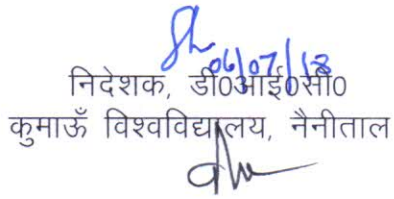 06/07/18
निदेशक, डी0आई0सी0
कुमाऊँ विश्वविद्यालय, नैनीताल